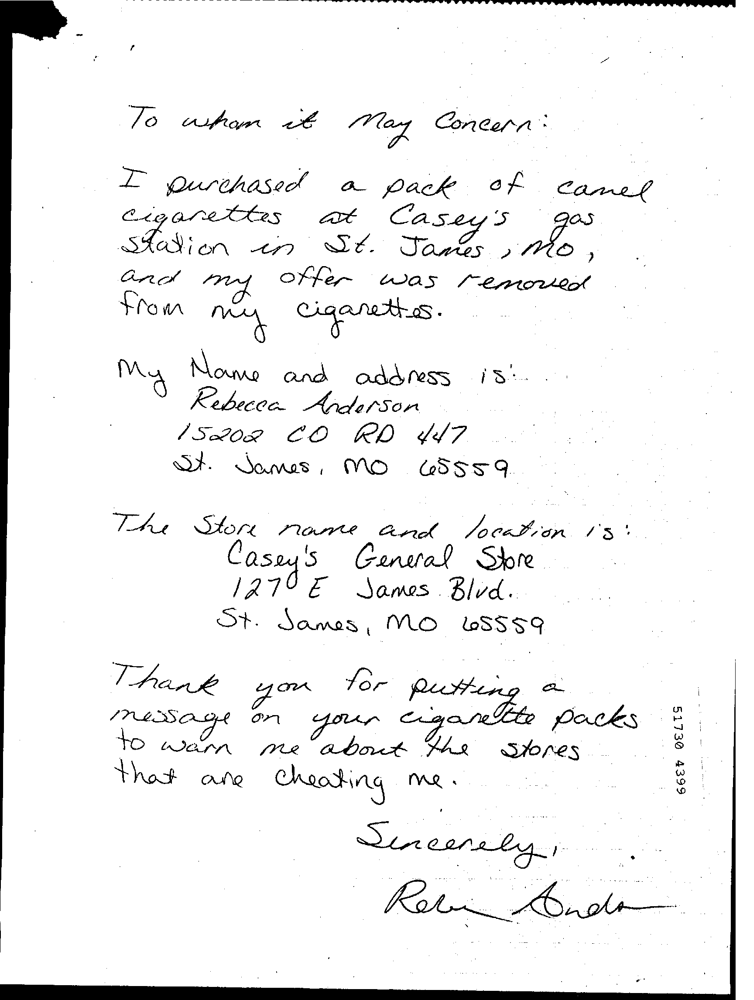 To whom it May Concern:
I purchased a pack of camel
cigarettes at Casey's gas
station in St. James, Mo,
and my offer was removed
from my cigarettes.
My Name and address is:
Rebecca Anderson
15202 CO RD 447
St. James, MO 65559
The Store name and location is:
Casey's General Store
1270 E James Blvd.
St. James, MO 65559
Thank you for putting a
message on your cigarette packs
to warn me about the stores
that are cheating me.
Sincerely,
51730 4399